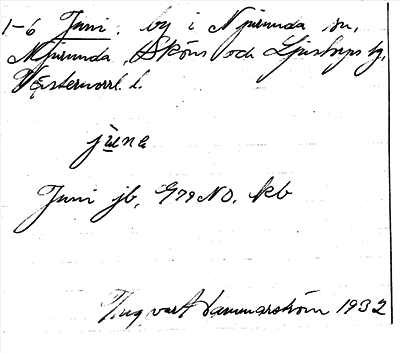 1-6 Juni. by i Njurunda sn,
Njurunda, Sköns och Ljustorps tg,
Västernorrl. l.
Juni jb, G79NO. kb
Hammarström 1932